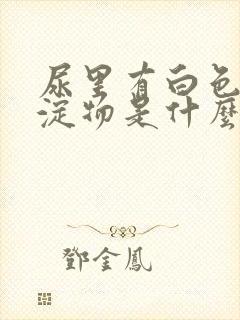 尿里有白色
淀物是什麽
鄧金鳳